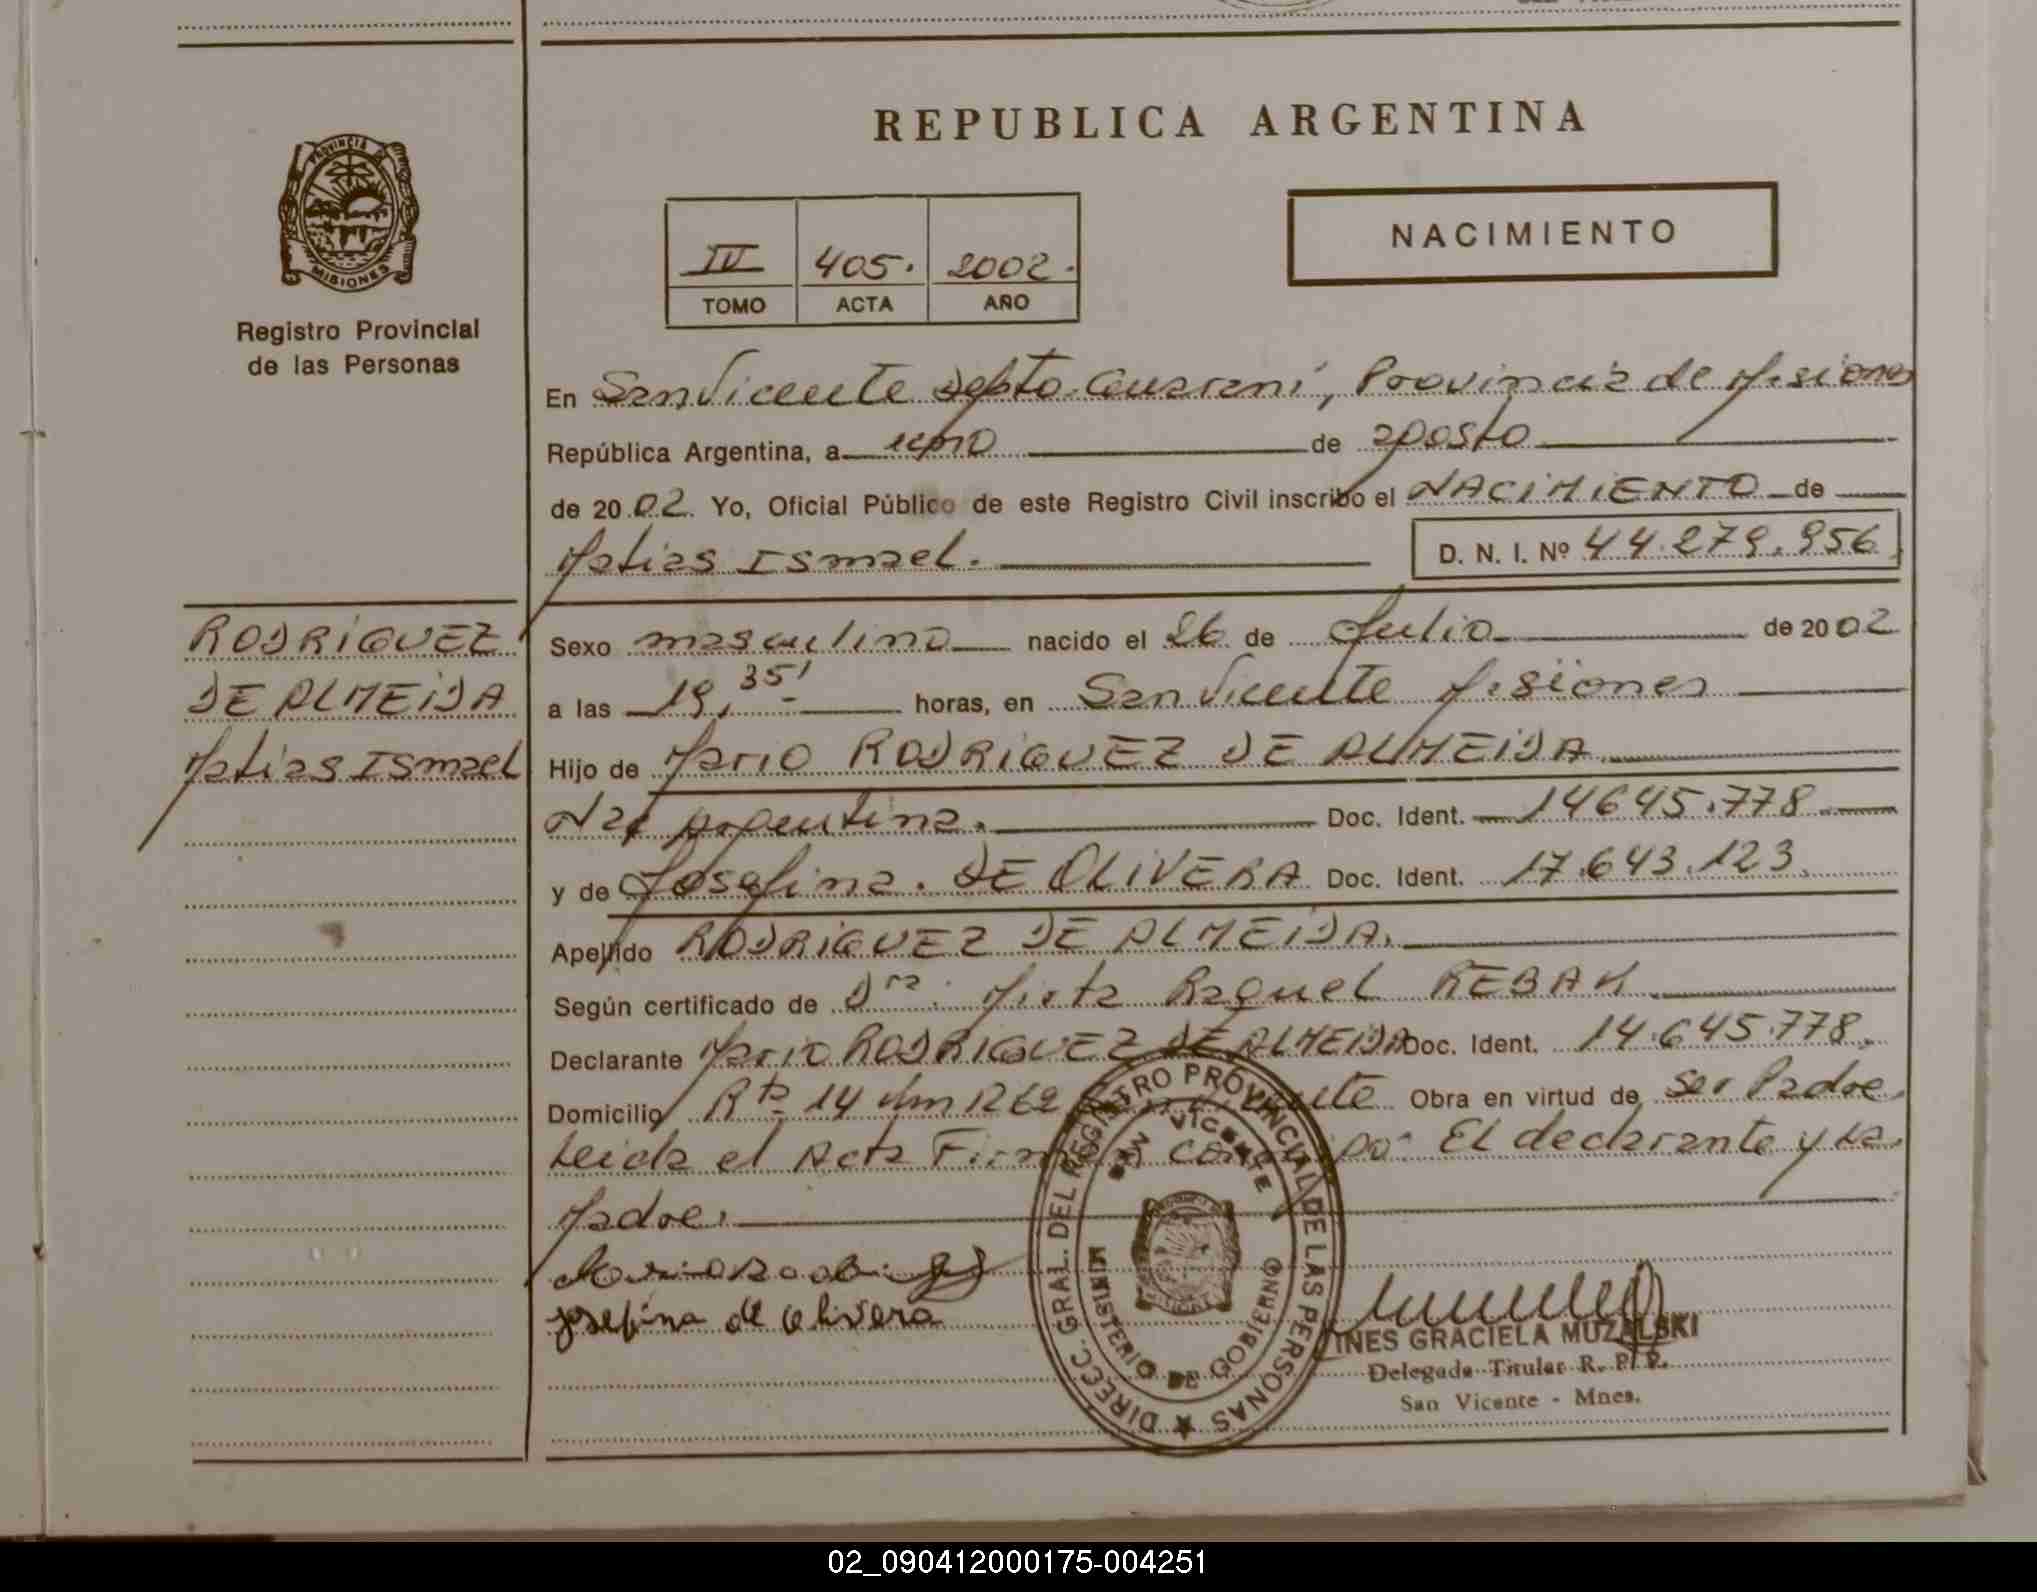 REPUBLICA ARGENTINA
PROVINCIA DE
MISIONES
Registro Provincial
de las Personas
IV 405. 2002.
TOMO ACTA AÑO
NACIMIENTO
En San Vicente Depto. Guaraní, Provincia de Misiones
República Argentina, a uno de agosto
de 2002. Yo, Oficial Público de este Registro Civil inscribo el NACIMIENTO de
Matias Ismael.
D. N. I. Nº 44.279.956
RODRIGUEZ
DE ALMEIDA
Matias Ismael
Sexo masculino nacido el 26 de Julio de 2002
a las 19,35' horas, en San Vicente Misiones
Hijo de Mario RODRIGUEZ DE ALMEIDA
Nac Argentina. Doc. Ident. 14645.778
y de Josefina. DE OLIVERA Doc. Ident. 17.643.123.
Apellido RODRIGUEZ DE ALMEIDA.
Según certificado de Dra. Mirta Raquel REBAK
Declarante Mario RODRIGUEZ DE ALMEIDA Doc. Ident. 14.645.778.
Domicilio Rta 14 Km 1262 Obra en virtud de ser Padre
Leida el Acta El declarante y La
Madre.
josefina de olivera
DIRECC. GRAL. DEL REGISTRO PROVINCIAL DE LAS PERSONAS
SAN VICENTE
MINISTERIO DE GOBIERNO
INES GRACIELA MUZALSKI
Delegada Titular R. P. P.
San Vicente - Mnes.
02_090412000175-004251